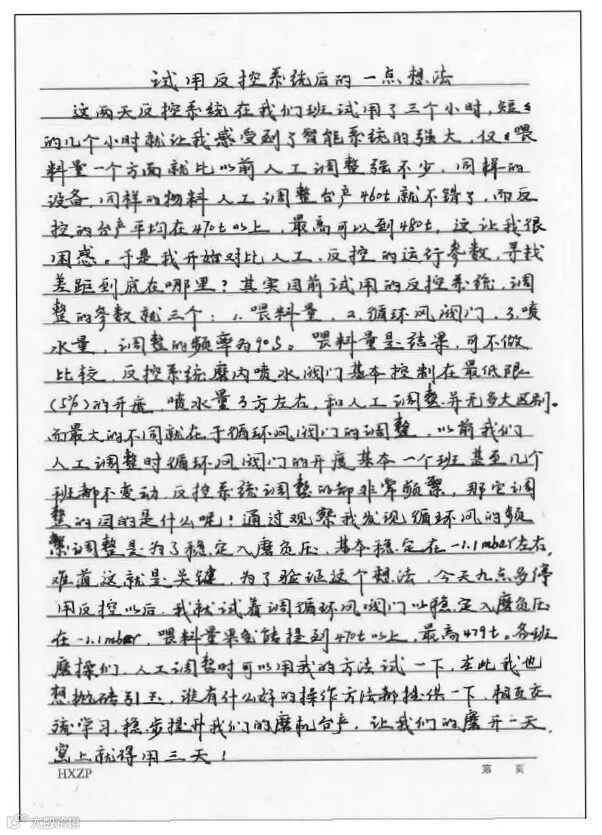 试用反控系统后的一点想法
这两天反控系统在我们班试用了三个小时，短短
的几个小时就让我感受到了智能系统的强大，仅仅喂
料量一个方面就比以前人工调整强不少，同样的
设备，同样的物料人工调整台产460t就不错了，而反
控的台产平均在470t以上，最高可以到480t，这让我很
困惑。于是我开始对比人工、反控的运行参数，寻找
差距到底在哪里？其实目前试用的反控系统，调
整的参数就三个：1.喂料量，2.循环风阀门，3.喷
水量，调整的频率为90S。喂料量是结果，可不做
比较，反控系统磨内喷水阀门基本控制在最低限
(5%)的开度，喷水量3方左右，和人工调整并无多大区别。
而最大的不同就在于循环风阀门的调整，以前我们
人工调整时循环风阀门的开度基本一个班甚至几个
班都不变动，反控系统调整的却非常频繁，那它调
整的目的是什么呢？通过观察我发现循环风的频
繁调整是为了稳定入磨负压，基本稳定在-1.1mbar左右，
难道这就是关键，为了验证这个想法，今天九点多停
用反控以后，我就试着调循环风阀门以稳定入磨负压
在-1.1mbar，喂料量果真能提到470t以上，最高479t。各班
磨操们，人工调整时可以用我的方法试一下，在此我也
想抛砖引玉，谁有什么好的操作方法都提供一下，相互交
流学习，稳步提升我们的磨机台产，让我们的磨开一天，
窑上就得用三天！
HXZP 第 页
大数跨境